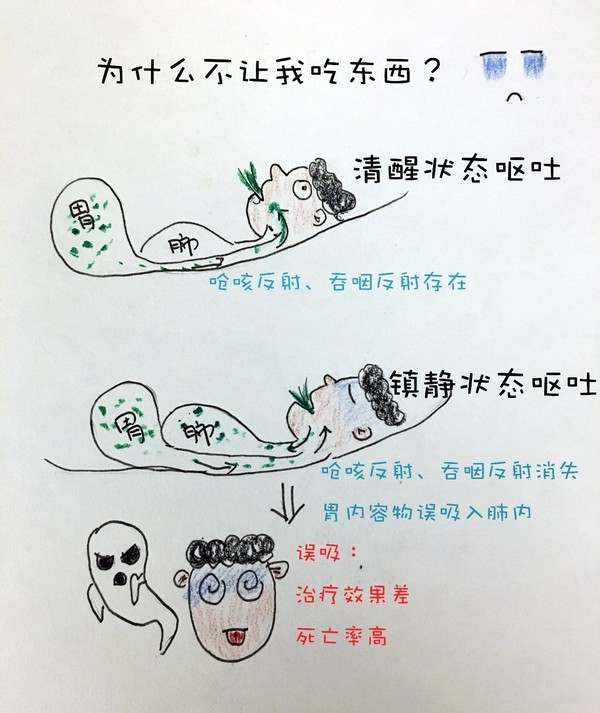 为什么不让我吃东西？
清醒状态呕吐
胃
肺
呛咳反射、吞咽反射存在
镇静状态呕吐
胃
肺
呛咳反射、吞咽反射消失
胃内容物误吸入肺内
误吸：
治疗效果差
死亡率高